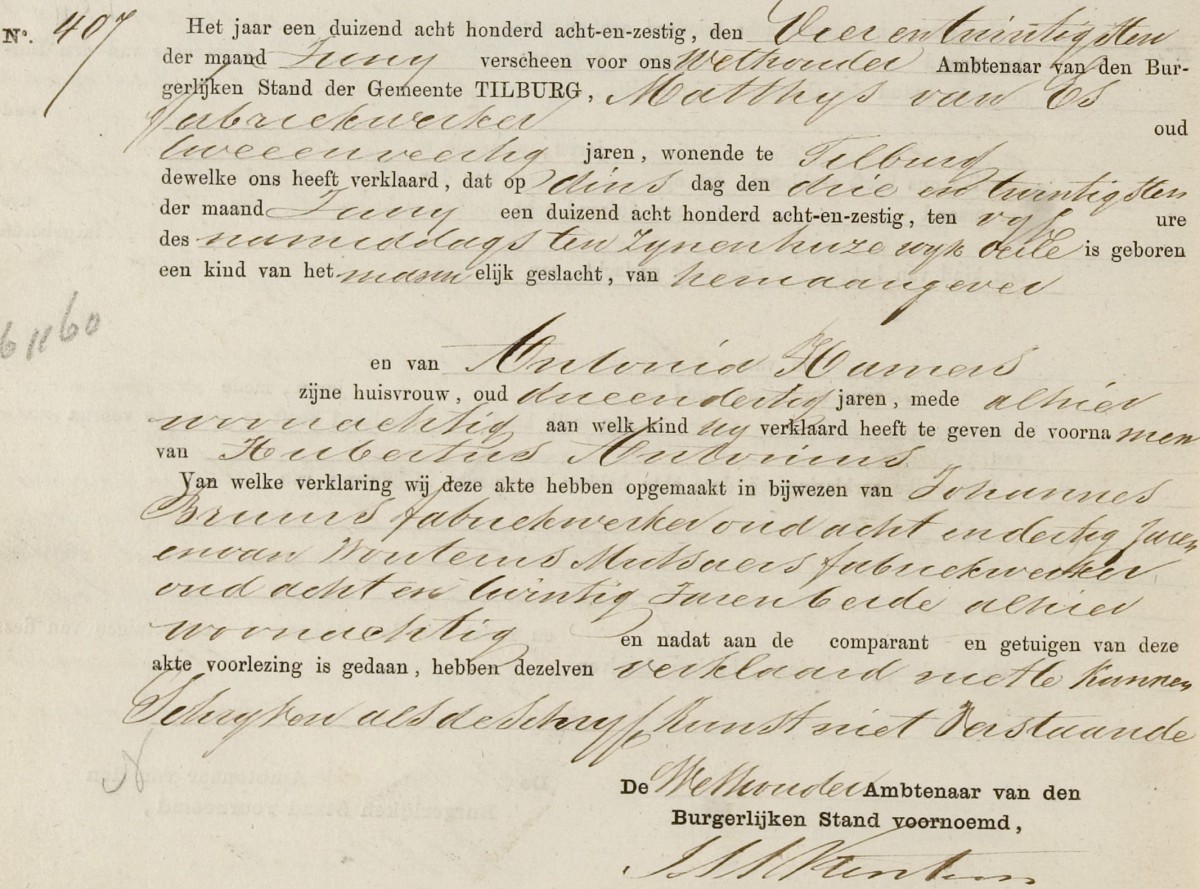 No. 407
Het jaar een duizend acht honderd acht-en-zestig, den Vier en twintigsten
der maand Juny verscheen voor ons Wethouder Ambtenaar van den Bur-
gerlijken Stand der Gemeente TILBURG, Matthys van Es
fabriekwerker oud
tweeenveertig jaren, wonende te Tilburg
dewelke ons heeft verklaard, dat op dins dag den drie en twintigsten
der maand Juny een duizend acht honderd acht-en-zestig, ten vyf ure
des namiddags ten zynen huize wyk is geboren
een kind van het mann elijk geslacht, van hem aangever
en van Antonia Hamers
zijne huisvrouw, oud drieendertig jaren, mede alhier
woonachtig aan welk kind hy verklaard heeft te geven de voorna men
van Hubertus Antonius
Van welke verklaring wij deze akte hebben opgemaakt in bijwezen van Johannes
Bruurs fabriekwerker oud acht en dertig Jaren
en van Wouterus Mutsaers fabriekwerker
oud acht en twintig Jaren beide alhier
woonachtig en nadat aan de comparant en getuigen van deze
akte voorlezing is gedaan, hebben dezelven verklaard niet te kunnen
Schryven als de schryfkunst niet Verstaande
De Wethouder Ambtenaar van den
Burgerlijken Stand voornoemd,